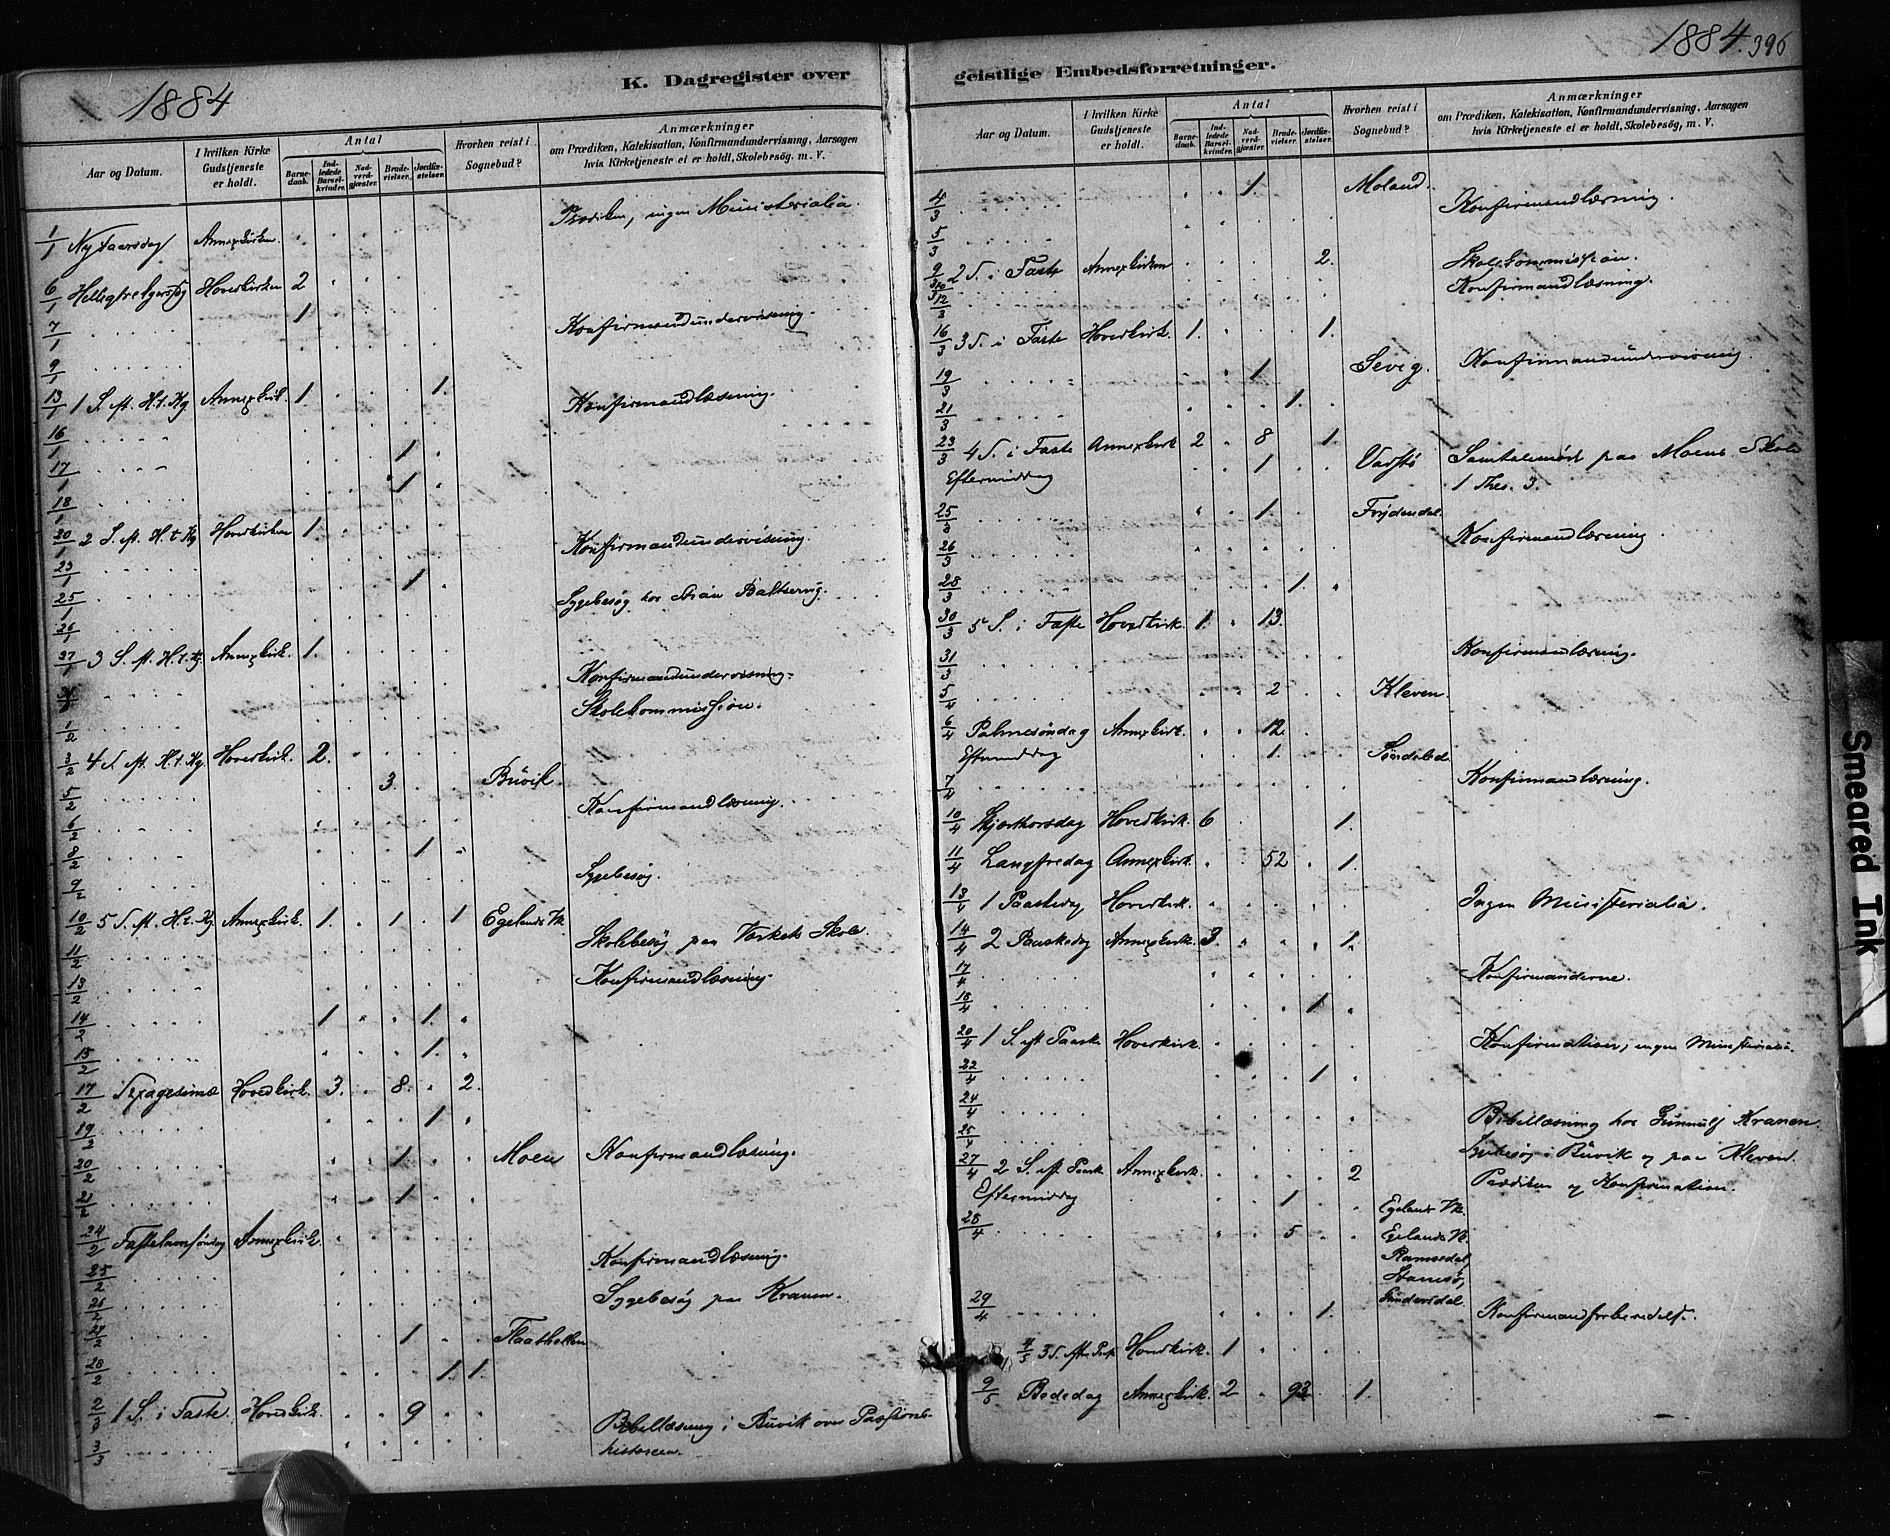 1884
K. Dagregister over
Aar og Datum.
I hvilken Kirke Gudstjeneste er holdt.
Antal
Barnedaab.
Indledede Barselkvinder.
Nadverdgjæster.
Brudevielser.
Jordfæstelser.
Hvorhen reist i Sognebud?
Anmærkninger
om Prædiken, Katekisation, Konfirmandundervisning, Aarsagen
hvis Kirketjeneste ei er holdt, Skolebesøg, m. V.
1/1 Nytaarsdag Annexkirken. Prædiken, ingen Ministerialia.
6/1 Helligtrekgersdag Hovedkirken 2
7/1 1
9/1 Konfirmandundervisning.
13/1 1 S. eft. H. t. Kg Annexkirk. 1. 1.
16/1 Konfirmandlæsning.
17/1 1
18/1 1
20/1 2 S. eft. H. t. Kg Hovedkirken 1.
23/1 Konfirmandundervisning.
25/1 1
26/1 Sygebesøg hos
27/1 3 S. eft. H. t. Kg. Annexkirk. 1.
Konfirmandundervisning.
1/2 Skolekommission.
3/2 4 S. eft. H. t. Kg. Hovedkirk. 2.
5/2 3. Buvik.
6/2 Konfirmandlæsning.
8/2 1
9/2 Sygebesøg.
10/2 5 S. eft. H. t. Kg Annexkirk. 1. 1. 1 Egelands Vk
11/2 Skolebesøg paa Værkets Skole.
13/2 Konfirmandlæsning.
14/2 1 1.
15/2 1.
17/2 Sexagesimæ Hovedkirk. 3. 8. 2.
19/2 1.
20/2 1. Moen Konfirmandlæsning.
21/2 1.
24/2 Fastelavnsøndag Annexkirk.
25/2 Konfirmandlæsning.
26/2 Sygebesøg paa Kranen.
27/2 1 Flaathellen
28/2 1. 1.
2/3 1 S. i Faste. Hovedkirk. 9
3/3 Bibellæsning i Buvik over Passions-
historien.
1884. 396
geistlige Embedsforretninger.
Aar og Datum.
I hvilken Kirke Gudstjeneste er holdt.
Antal
Barnedaab.
Indledede Barselkvinder.
Nadverdgjæster.
Brudevielser.
Jordfæstelser.
Hvorhen reist i Sognebud?
Anmærkninger
om Prædiken, Katekisation, Konfirmandundervisning, Aarsagen
hvis Kirketjeneste ei er holdt, Skolebesøg, m. V.
4/3 1. Moland.
5/3 Konfirmandlæsning.
9/3 2 S. i Faste Annexkirken 2.
10/3 Skolekommission.
12/3 Konfirmandlæsning.
16/3 3 S. i Faste Hovedkirk. 1. 1.
19/3 1 Sevig. Konfirmandundervisning.
21/3 1.
23/3 4 S. i Faste Annexkirk 2 8 1.
Eftermiddag 1 Varstø Samtalemøde paa Moens Skole
1 Thes. 3.
25/3 1 Frydendal.
26/3 Konfirmandlæsning.
28/3 1.
30/3 5 S. i Faste Hovedkirk. 1. 13.
31/3 Konfirmandlæsning.
5/4 2 Kleven
6/4 Palmesøndag Annexkirk. 12.
Eftermiddag 1. Søndeled.
7/4 Konfirmandlæsning.
10/4 Skjærthorsdag Hovedkirk. 6 1.
11/4 Langfredag Annexkirk. 52 1.
13/4 1 Paaskedag Hovedkirk. Ingen Ministerialia.
14/4 2 Paaskedag Annexkirk. 3. 1.
17/4 Konfirmanderne.
18/4 1
20/4 1 S. eft Paaske Hovedkirk. Konfirmation, ingen Ministerialia.
22/4 1
24/4 Bibellæsning hos Gunnulf Kranen.
25/4 Sygebesøg i Buvik og paa Kleven.
27/4 2 S. eft Paask Annexkirk. 2 Prædiken og Konfirmation.
Eftermiddag 1 Egelands Vk
28/4 5 Egelands Vk.
Ramsedal,
29/4 1. Konfirmandforberedelse.
4/5 3 S. efter Paaske Hovedkirk. 1
9/5 Bededag Annexkirk. 2 93 1.
Smeared Ink